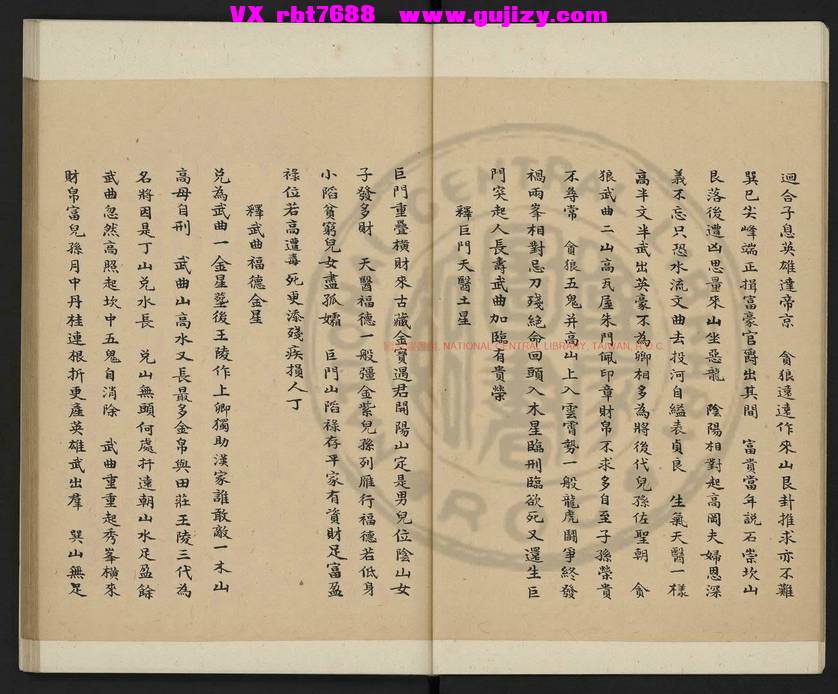 VX rbt7688 www.gujizy.com
迴合子息英雄達帝京 貪狼遠遠作來山艮卦推求亦不難
巽巳尖峰端正揖富豪官爵出其間 富貴當年説石崇坎山
艮落後遭凶思量來山坐惡龍 陰陽相對起高岡夫婦恩深
義不忘只恐水流文曲去投河自縊表貞良 生氣天醫一樣
高半文半武出英豪不為卿相多為將後代兒孫佐聖朝 貪
狼武曲二山高瓦屋朱門佩印章財帛不求多自至子孫榮貴
不尋常 貪狼五鬼并高山上入雲霄勢一般龍虎鬪爭終發
禍兩峯相對忌刀殘絶命回頭入木星臨刑臨欲死又還生巨
門突起人長壽武曲加臨有貴榮
釋巨門天醫土星
巨門重疊横財來古藏金寳遇君開陽山定是男兒位陰山女
子發多財 天醫福德一般彊金紫兒孫列雁行福德若低身
小陷貧窮兒女盡孤孀 巨門山陷禄存平家有資財足富盈
禄位若高遭毒死更添殘疾損人丁
釋武曲福德金星
兌為武曲一金星塟後王陵作上卿獨助漢家誰敢敵一木山
高毋自刑 武曲山高水又長最多金帛與田莊王陵三代為
名將因是丁山兌水長 兌山無頭何處扦遠朝山水足盈餘
武曲忽然高照起坎中五鬼自消除 武曲重重起秀峯横來
財帛富兒孫月中丹桂連根折更產英雄武出羣 巽山無足
NATIONAL CENTRAL LIBRARY, TAIWAN, R.O.C.